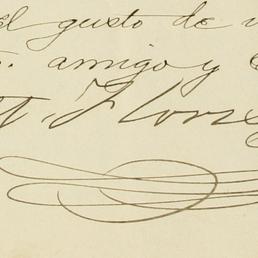 el gusto de
S. amigo y
A. Flores